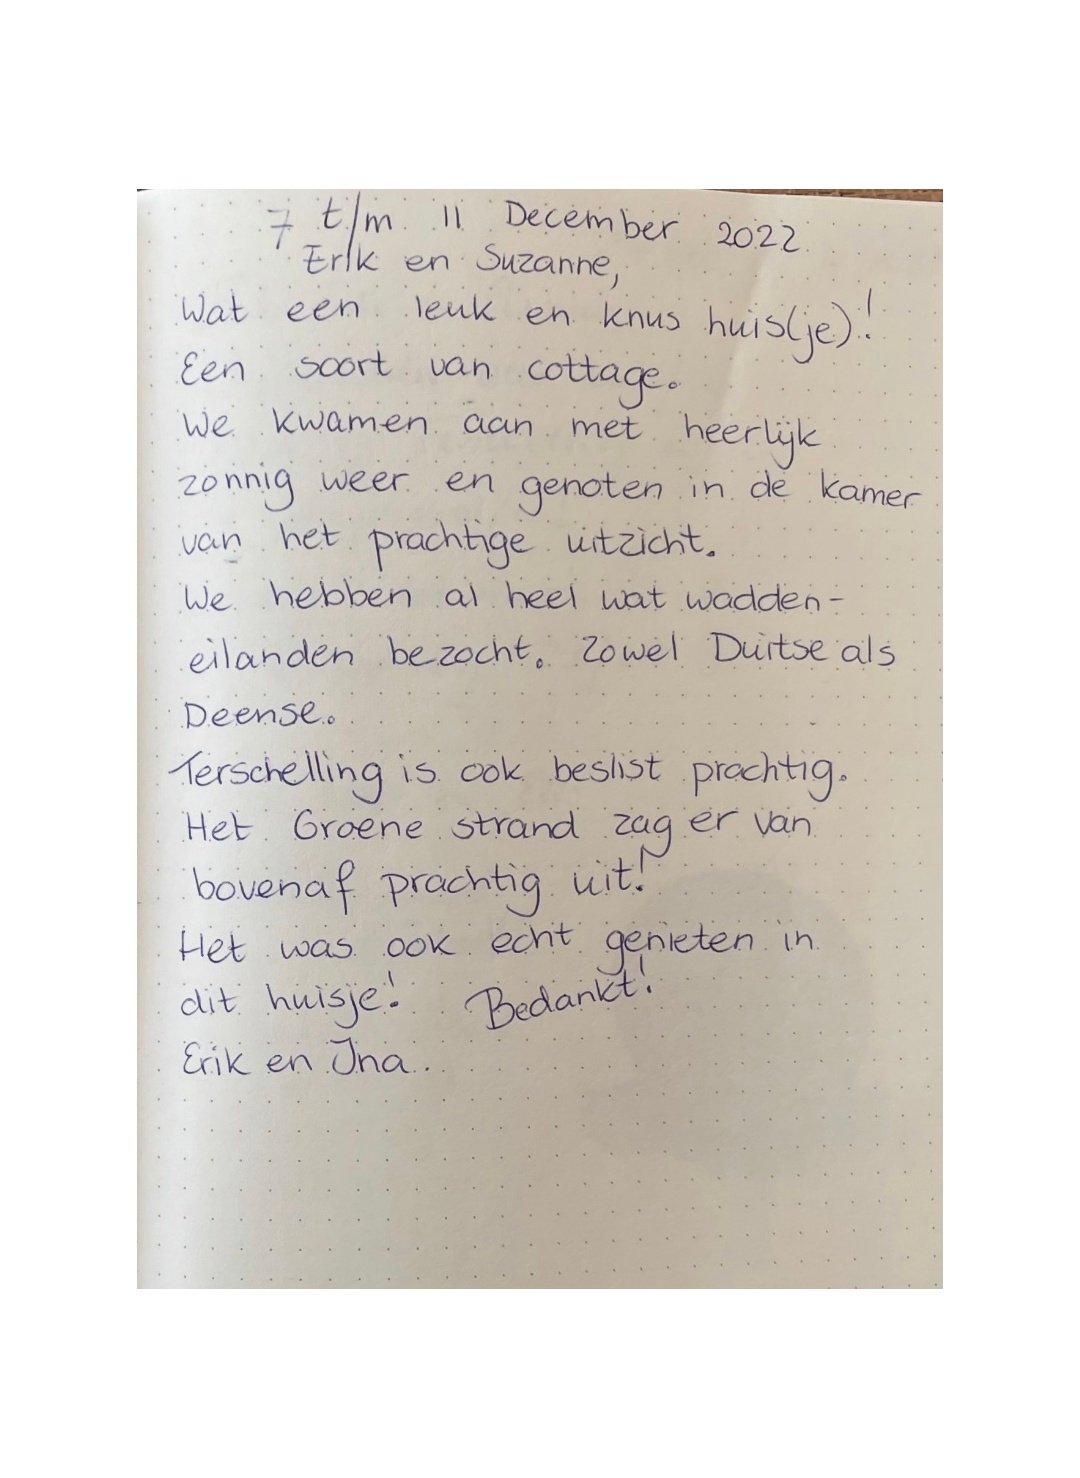 7 t/m 11 December 2022
Erik en Suzanne,
Wat een leuk en knus huis(je)!
Een soort van cottage.
We kwamen aan met heerlijk
zonnig weer en genoten in de kamer
van het prachtige uitzicht.
We hebben al heel wat wadden-
eilanden bezocht. Zowel Duitse als
Deense.
Terschelling is ook beslist prachtig.
Het Groene strand zag er van
bovenaf prachtig uit!
Het was ook echt genieten in
dit huisje! Bedankt!
Erik en Ina.